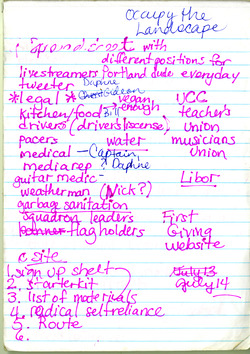 Occupy the
Landscape
with
different positions for
livestreamers Portland dude everyday
tweeter Daphne
*legal* Gideon
vegan, enough UCC
kitchen/food Bill teacher's
drivers (drivers license) Union
pacers water musicians
medical - Captain Union
media rep Daphne
guitar medic - Libor
weatherman (Nick?)
garbage sanitation
squadron leaders First
flag holders Giving
website
c. site
1. sign up sheet July 13
2. starter kit July 14
3. list of materials
4. radical self reliance
5. Route
6.